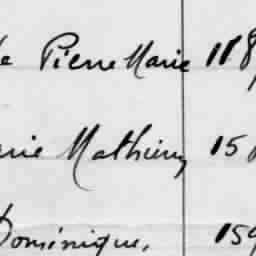 Pierre Marie 118
Mathieu 15
Dominique. 159